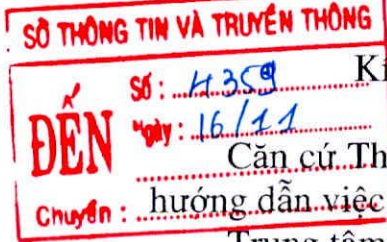 SỞ THÔNG TIN VÀ TRUYỀN THÔNG
ĐẾN
Số: 4359
Ngày: 16/11
Chuyển:
Kí
Căn cứ Th
hướng dẫn việc
Trung tâm